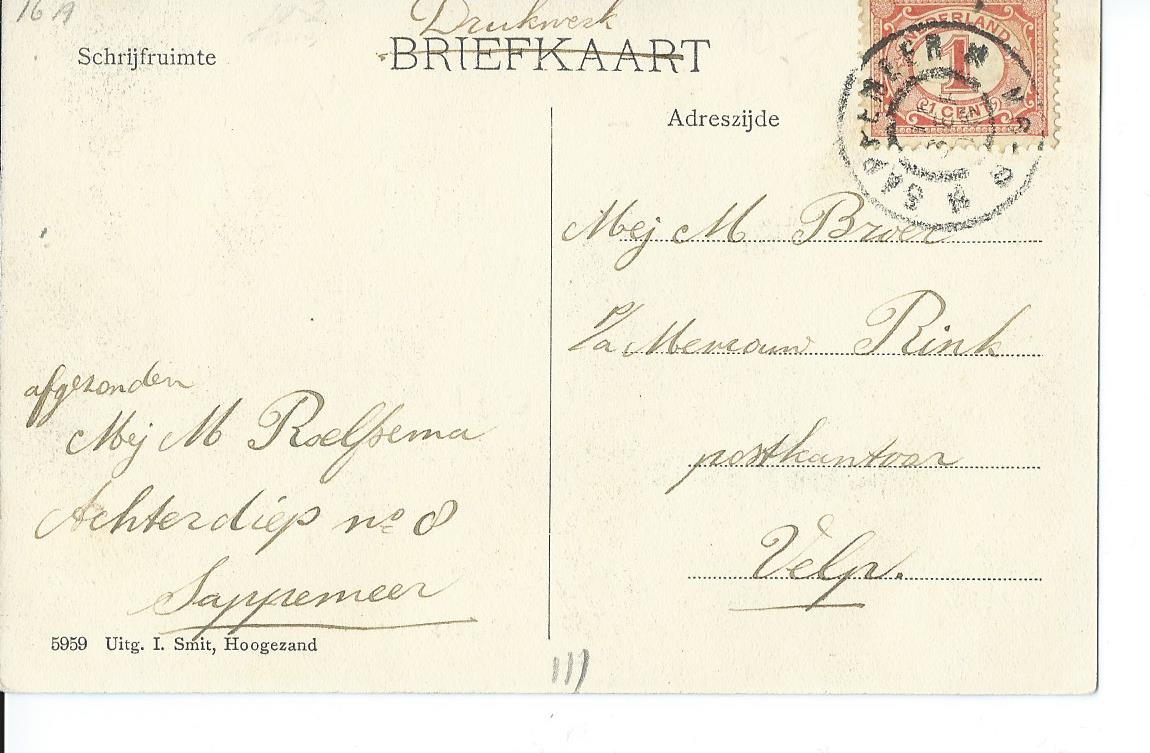 16A
Drukwerk
BRIEFKAART
Schrijfruimte
Adreszijde
NEDERLAND
1
1 CENT
SAPPEMEER
Mej M Broer
p/a Mevrouw Rink
postkantoor
Velp.
afgezonden
Mej M Roelfsema
Achterdiep no 8
Sappemeer
5959 Uitg. I. Smit, Hoogezand